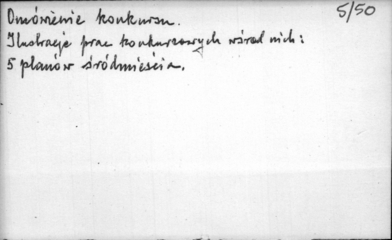 Omówienie konkursu. 5/50
Ilustracje prac konkursowych wśród nich:
5 planów śródmieścia.